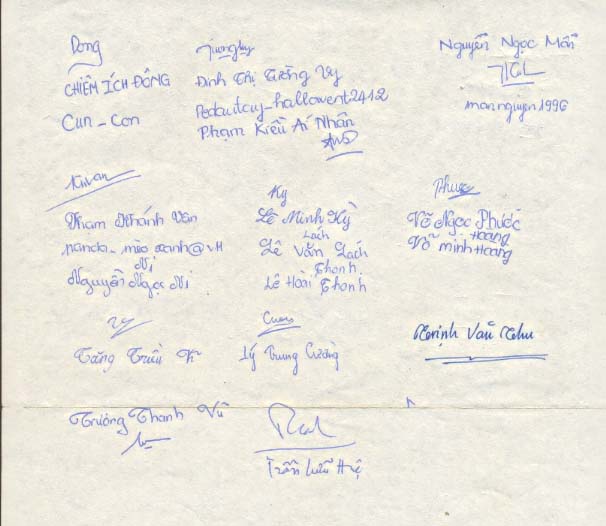 Dong
CHIÊM ÍCH ĐÔNG
Cun - Con
Tuongvy
Đinh Thị Tường Vy
Pedautay_hallowent2412
Phạm Kiều Ái Nhân
Nguyễn Ngọc Mẩn
man nguyen 1996
Phạm Khánh Vân
panda_mio xanh@VH
Ni
Nguyễn Ngọc Ni
Ky
Lê Minh Kỳ
Lách
Lê Văn Lách
Thanh
Lê Hoài Thanh
Phước
Võ Ngọc Phước
Hoang
Võ Minh Hoang
Vy
Tăng Triều Vĩ
Cuong
Lý Trung Cường
Trịnh Văn Như
Trương Thanh Vũ
Trần Lưu Huệ